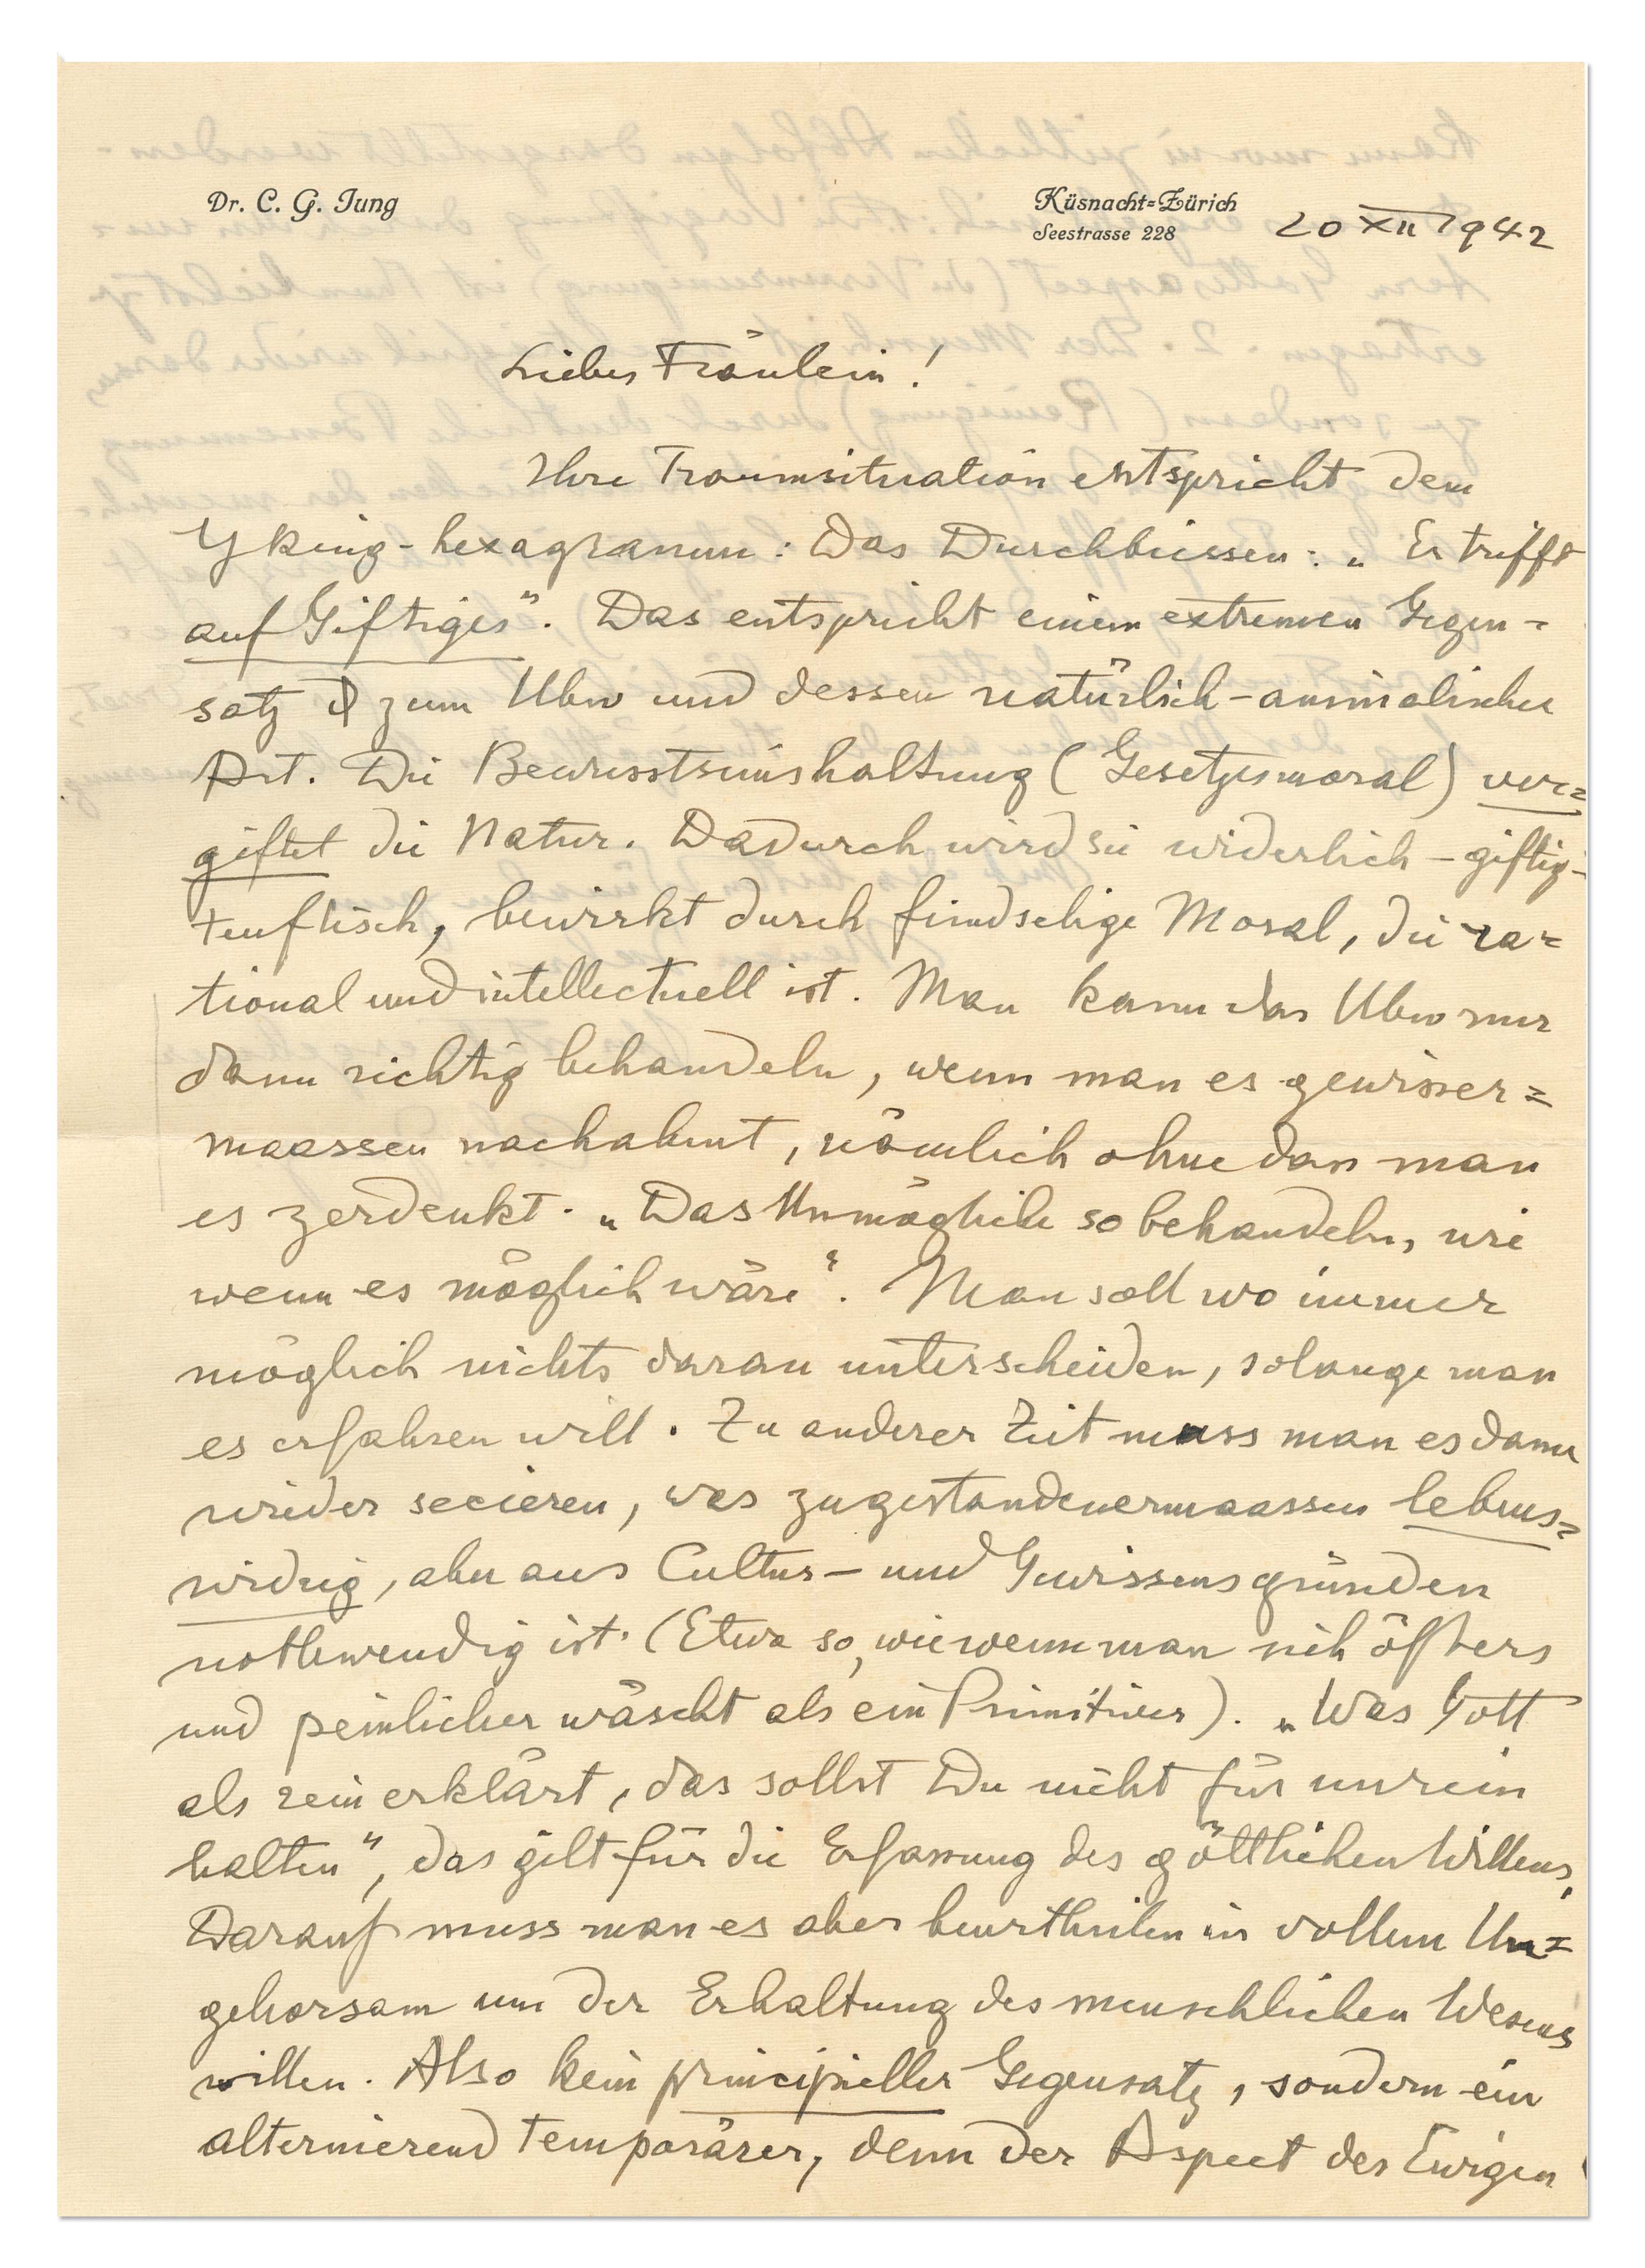 Dr. C. G. Jung
Küsnacht-Zürich
Seestrasse 228
20 XII 1942
Liebes Fräulein!
Ihre Traumsituation entspricht dem
Yking-hexagramm: Das Durchbeissen: „Er trifft
auf Giftiges". Das entspricht einem extremen Gegen=
satz zum Ubw und dessen natürlich-animalischer
Art. Die Bewusstseinshaltung (Gesetzesmoral) ver=
giftet die Natur. Dadurch wird sie widerlich-giftig-
teuflisch, bewirkt durch feindselige Moral, die ra=
tional und intellectuell ist. Man kann das Ubw nur
dann richtig behandeln, wenn man es gewisser=
maassen nachahmt, nämlich ohne dass man
es zerdenkt. „Das Unmögliche so behandeln, wie
wenn es möglich wäre". Man soll wo immer
möglich nichts daran unterscheiden, solange man
es erfahren will. Zu anderer Zeit muss man es dann
wieder secieren, was zugestandenermaassen lebens=
widrig, aber aus Cultur- und Gewissensgründen
nothwendig ist. (Etwa so, wie wenn man sich öfters
und peinlicher wäscht als ein Primitiver). „Was Gott
als rein erklärt, das sollst Du nicht für unrein
halten", das gilt für die Erfassung des göttlichen Willens,
Darauf muss man es aber beurtheilen in vollem Un=
gehorsam um der Erhaltung des menschlichen Wesens
willen. Also kein principieller Gegensatz, sondern ein
alternierend temporärer, denn der Aspect des Ewigen